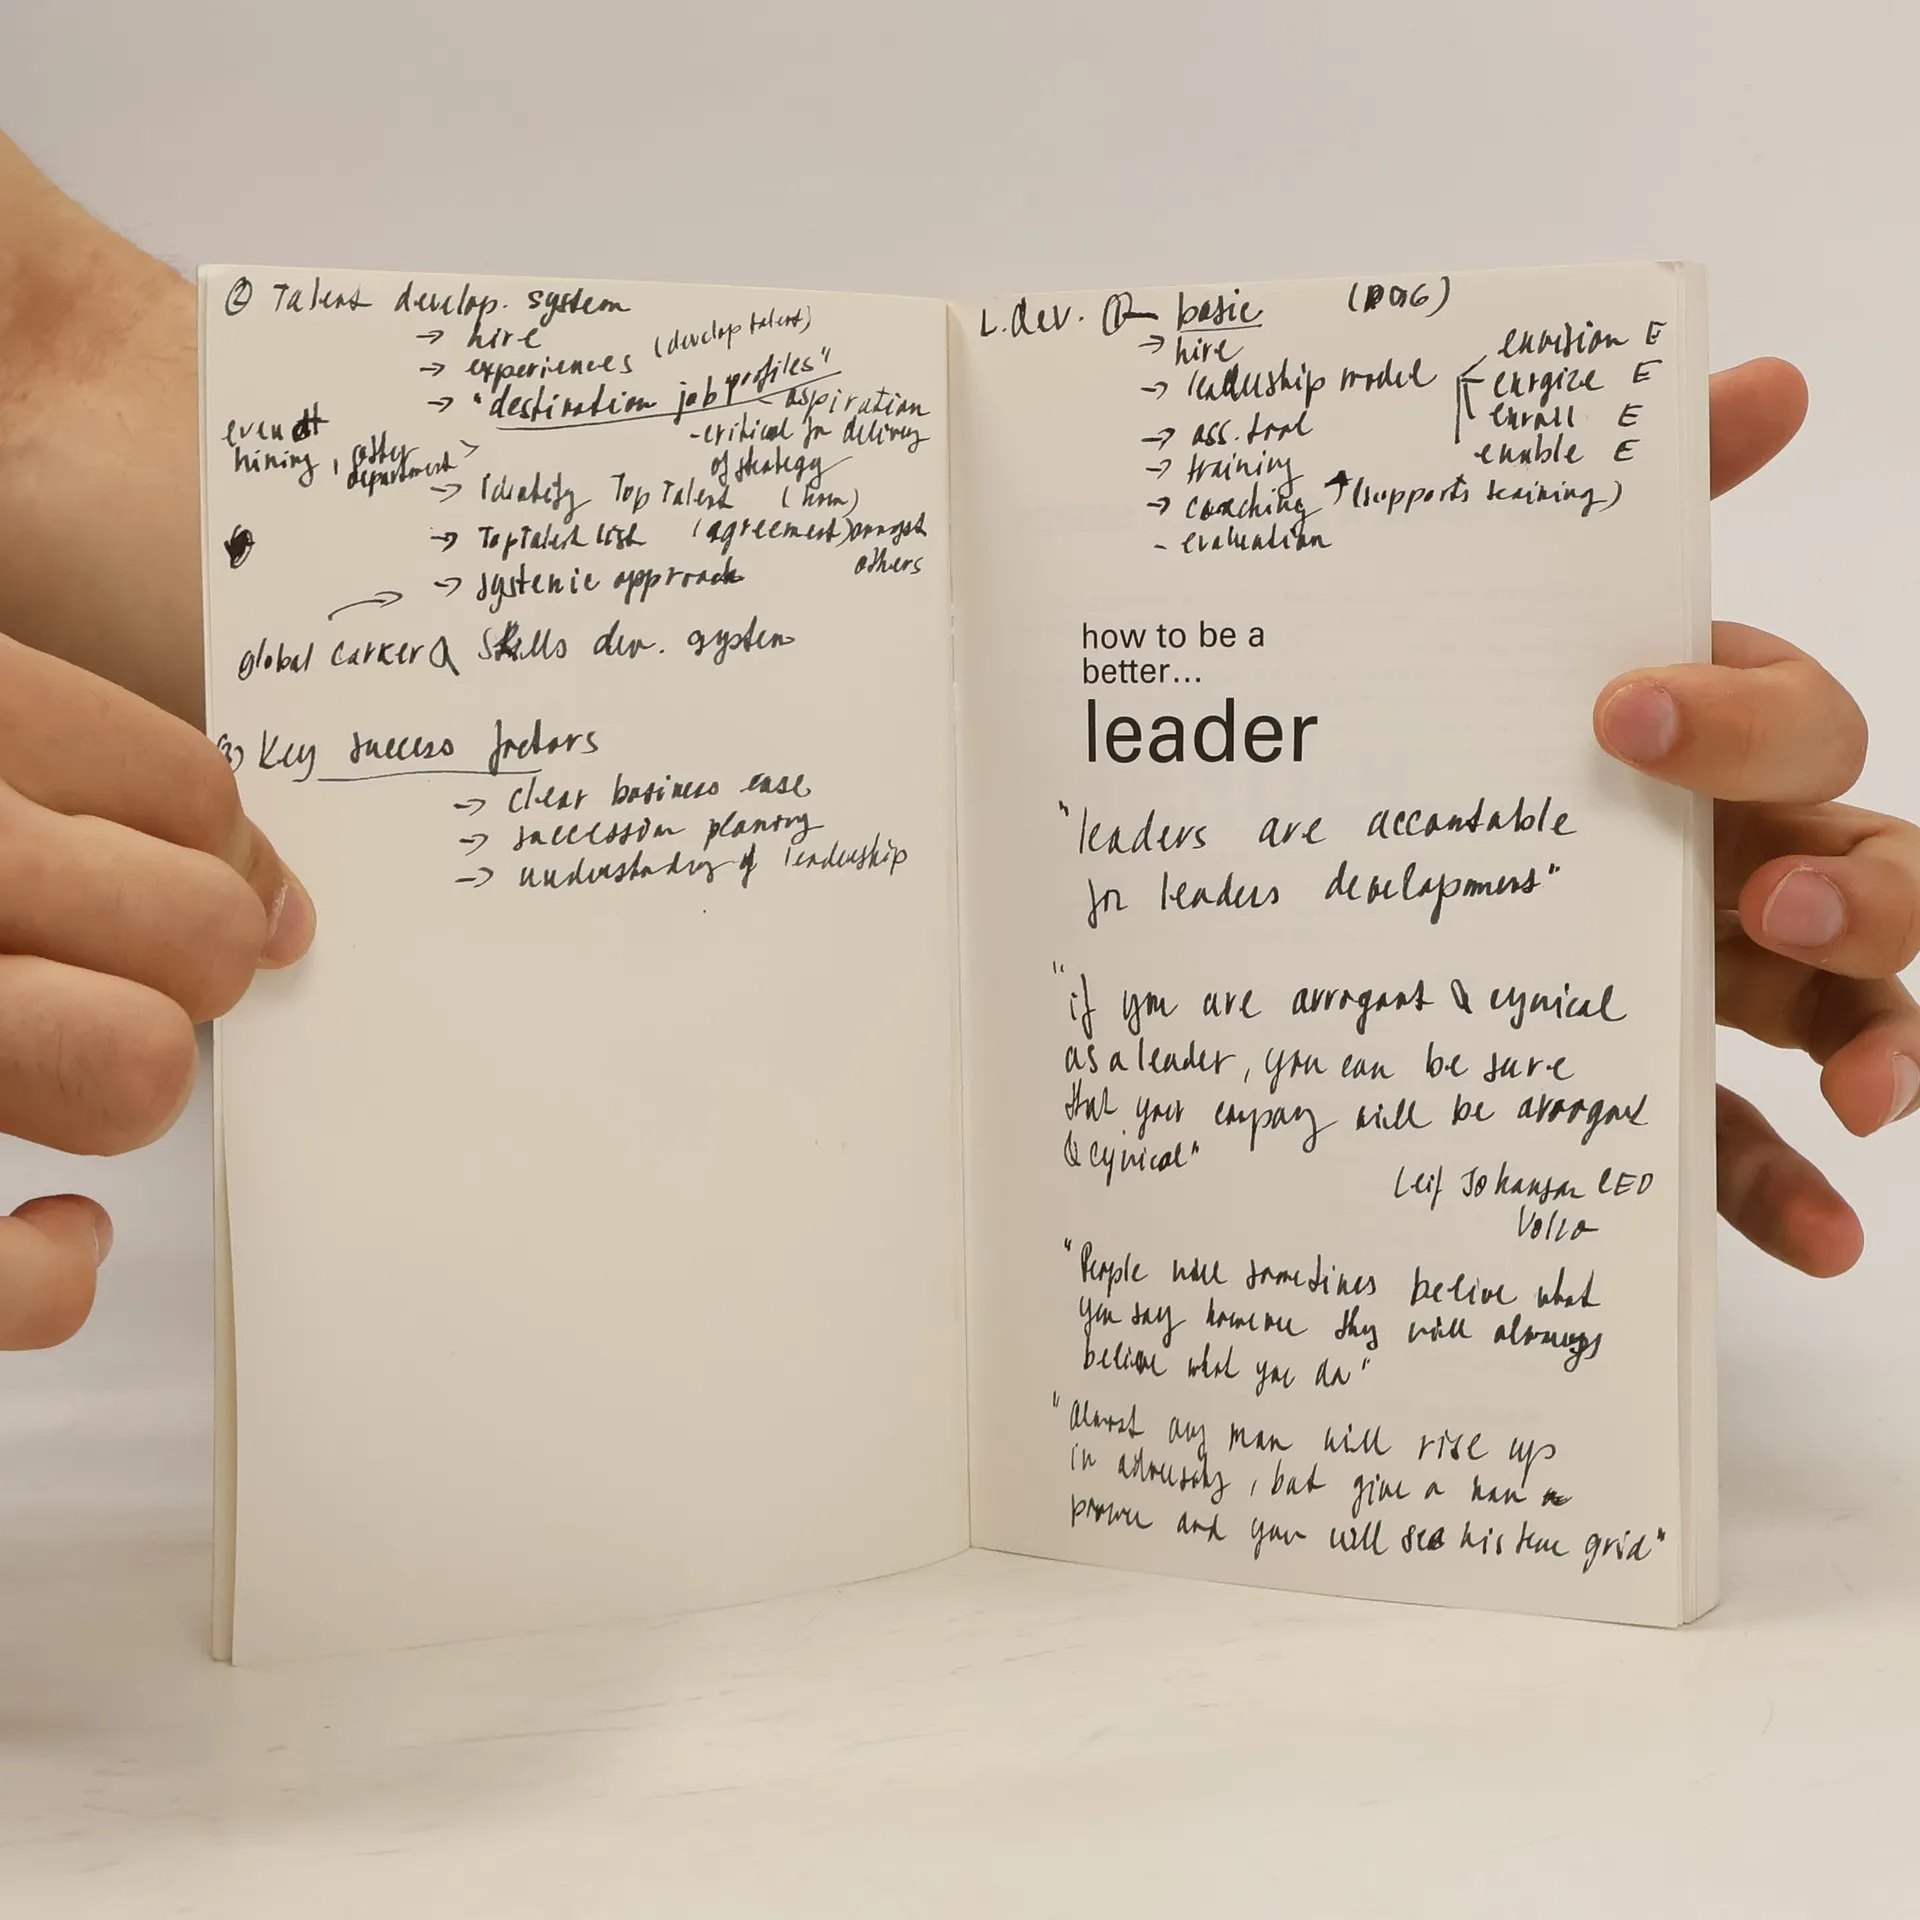 ② Talent develop. system
→ hire
→ experiences (develop talent)
→ "destination job profiles"
- aspiration
- critical for delivery
of strategy
even
hiring, other
department
→ Identify Top Talent
→ Top Talent list (agreement) amongst
others
→ systemic approach
global career & skills dev. system
③ Key success factors
→ clear business case
→ succession planing
→ understanding of leadership
L. dev. ① basic
→ hire
→ leadership model
envision E
energize E
enroll E
enable E
→ ass. tool
→ training
→ coaching (supports training)
- evaluation
how to be a
better...
leader
"leaders are accountable
for leaders development"
"if you are arrogant & cynical
as a leader, you can be sure
that your company will be arrogant
& cynical"
Leif Johanson CEO
Volvo
"People will sometimes belive what
you say however they will always
believe what you do"
"Almost any man will rise up
in adversity, but give a man
power and you will see his true grid"